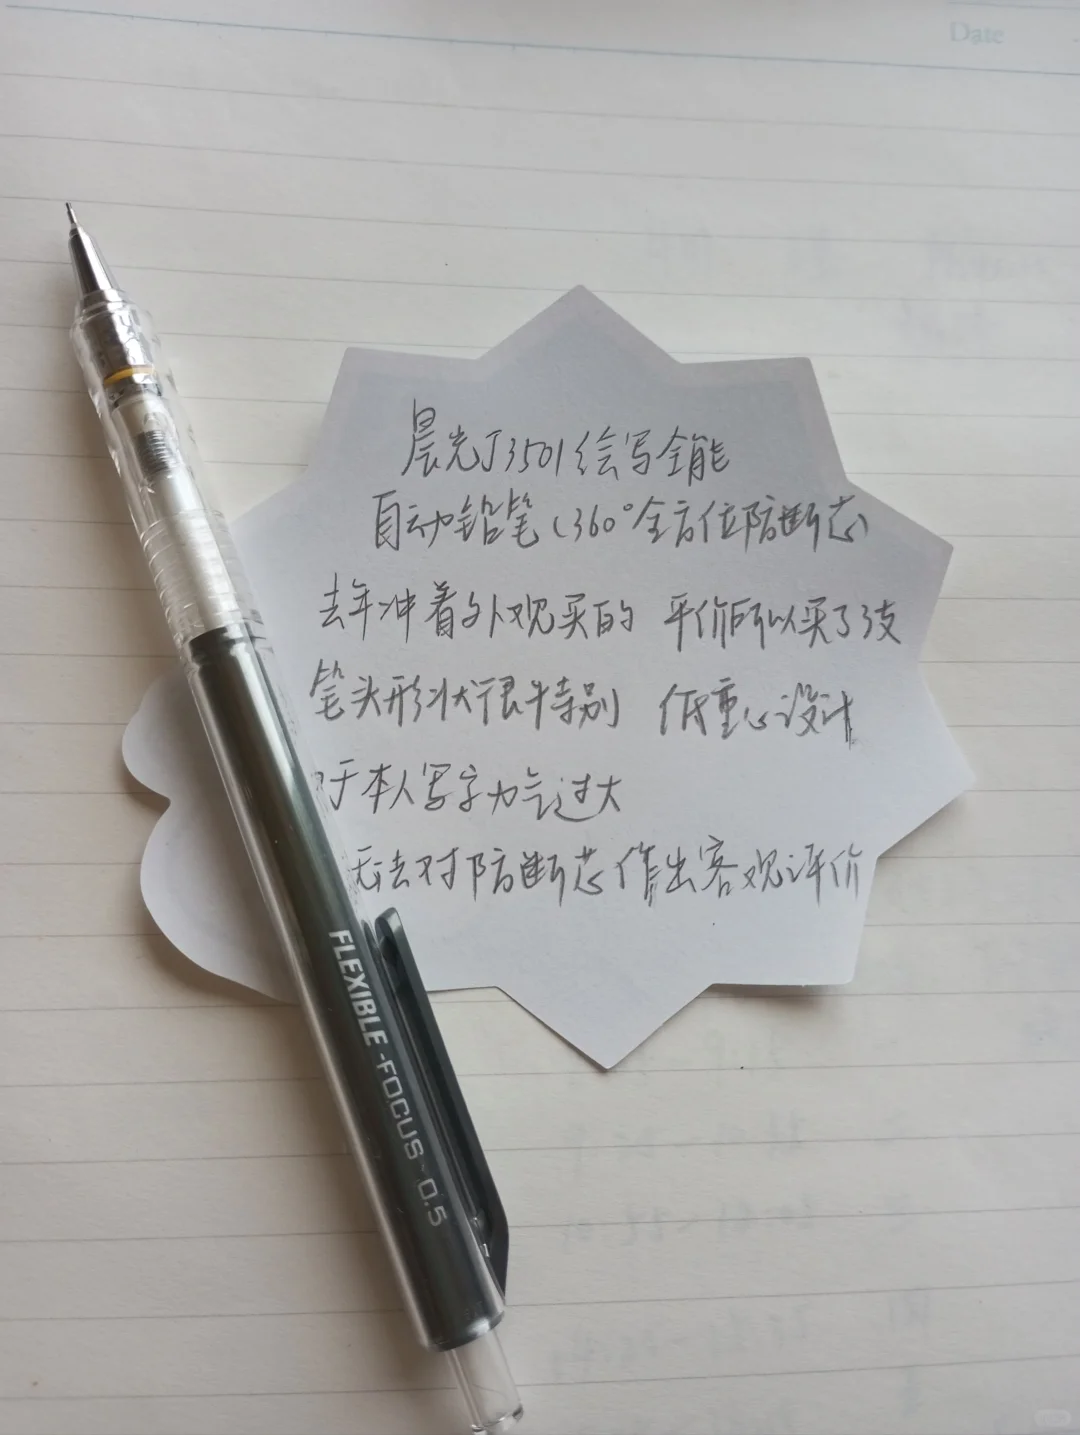 Date
晨光J3501绘写全能
自动铅笔(360°全方位防断芯
去年冲着外观买的 平价所以买了3支
笔头形状很牛特别 低重心设计
于本人写字力气过大
无法对防断芯作出客观评价
FLEXIBLE-FOCUS 0.5